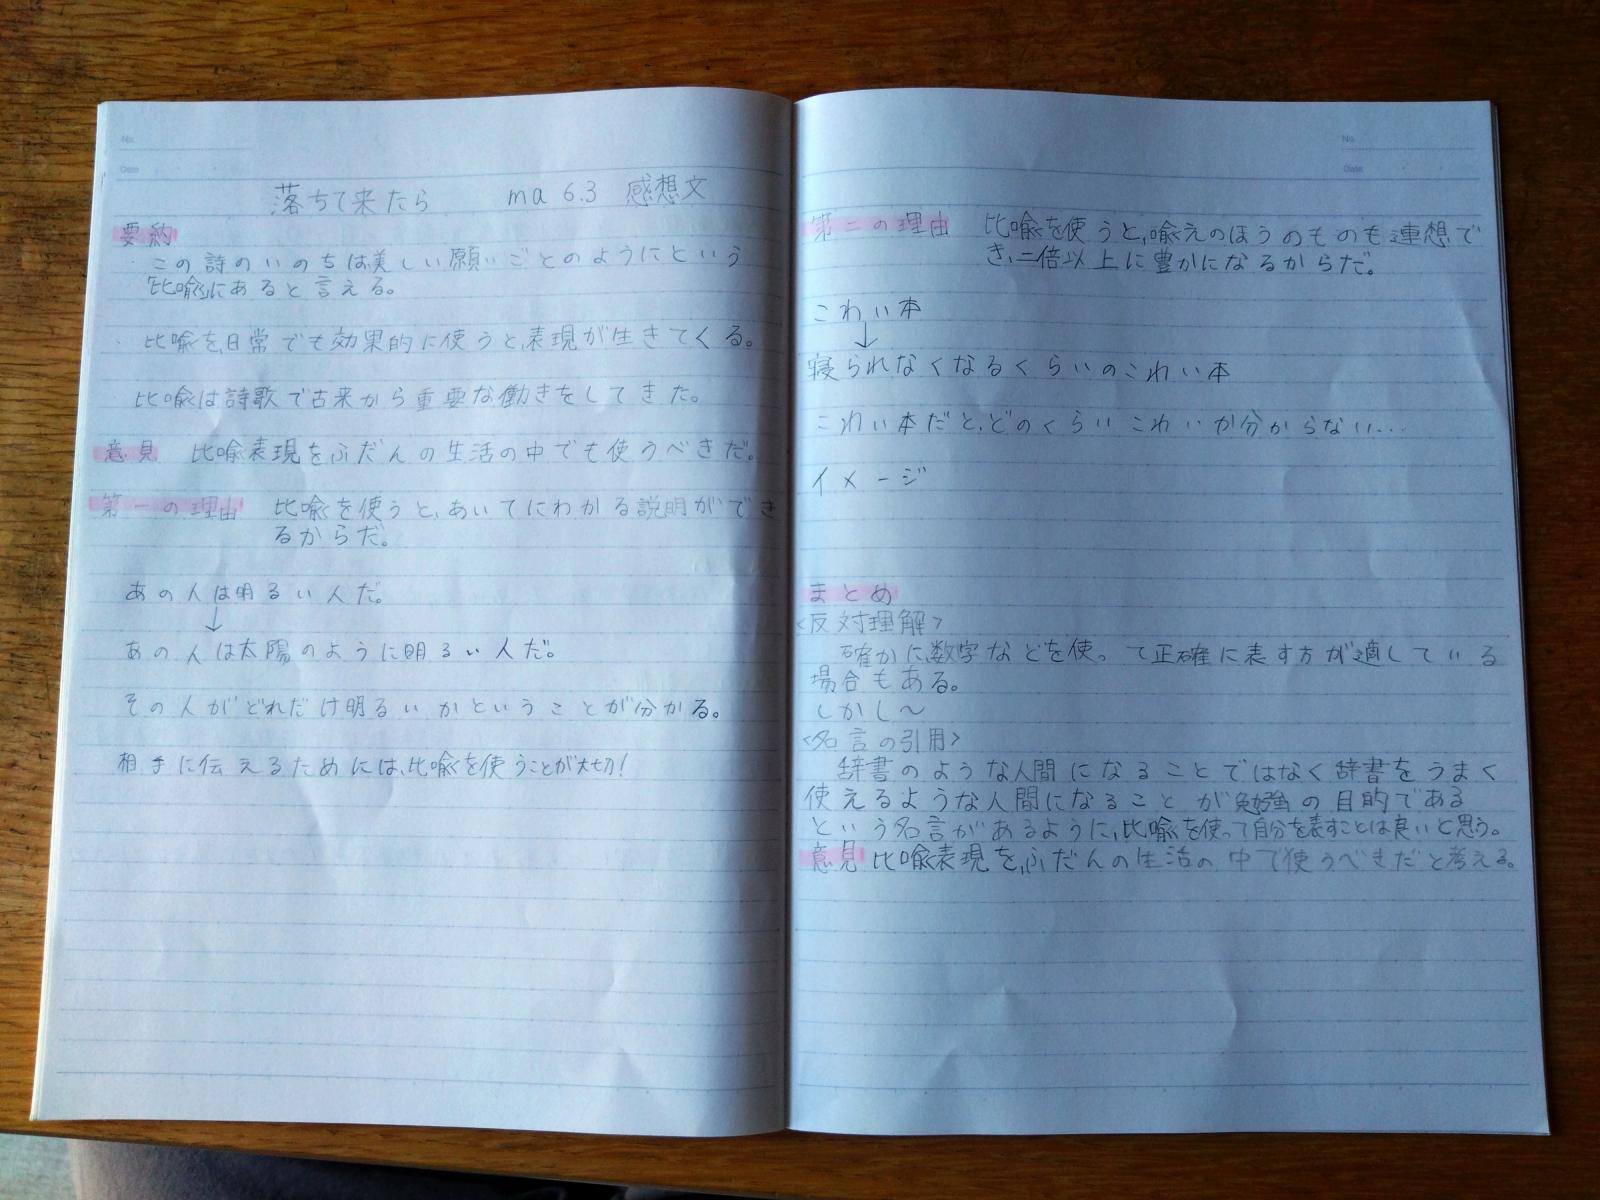 No.
Date
落ちて来たら ma 6.3 感想文
要約
この詩のいのちは美しい願いごとのようにという
比喩にあると言える。
比喩を日常でも効果的に使うと、表現が生きてくる。
比喩は詩歌で古来から重要な働きをしてきた。
意見 比喩表現をふだんの生活の中でも使うべきだ。
第一の理由 比喩を使うと、あいてにわかる説明ができ
るからだ。
あの人は明るい人だ。
↓
あの人は太陽のように明るい人だ。
その人がどれだけ明るいかということが分かる。
相手に伝えるためには、比喩を使うことが大切!
No.
Date
第二の理由 比喩を使うと、喩えのほうのものも連想で
き、二倍以上に豊かになるからだ。
こわい本
↓
寝られなくなるくらいのこわい本
こわい本だと、どのくらいこわいか分からない…
イメージ
まとめ
<反対理解>
確かに、数字などを使って正確に表す方が適している
場合もある。
しかし〜
<名言の引用>
辞書のような人間になることではなく辞書をうまく
使えるような人間になることが勉強の目的である
という名言があるように、比喩を使って自分を表すことは良いと思う。
意見 比喩表現を、ふだんの生活の中で使うべきだと考える。